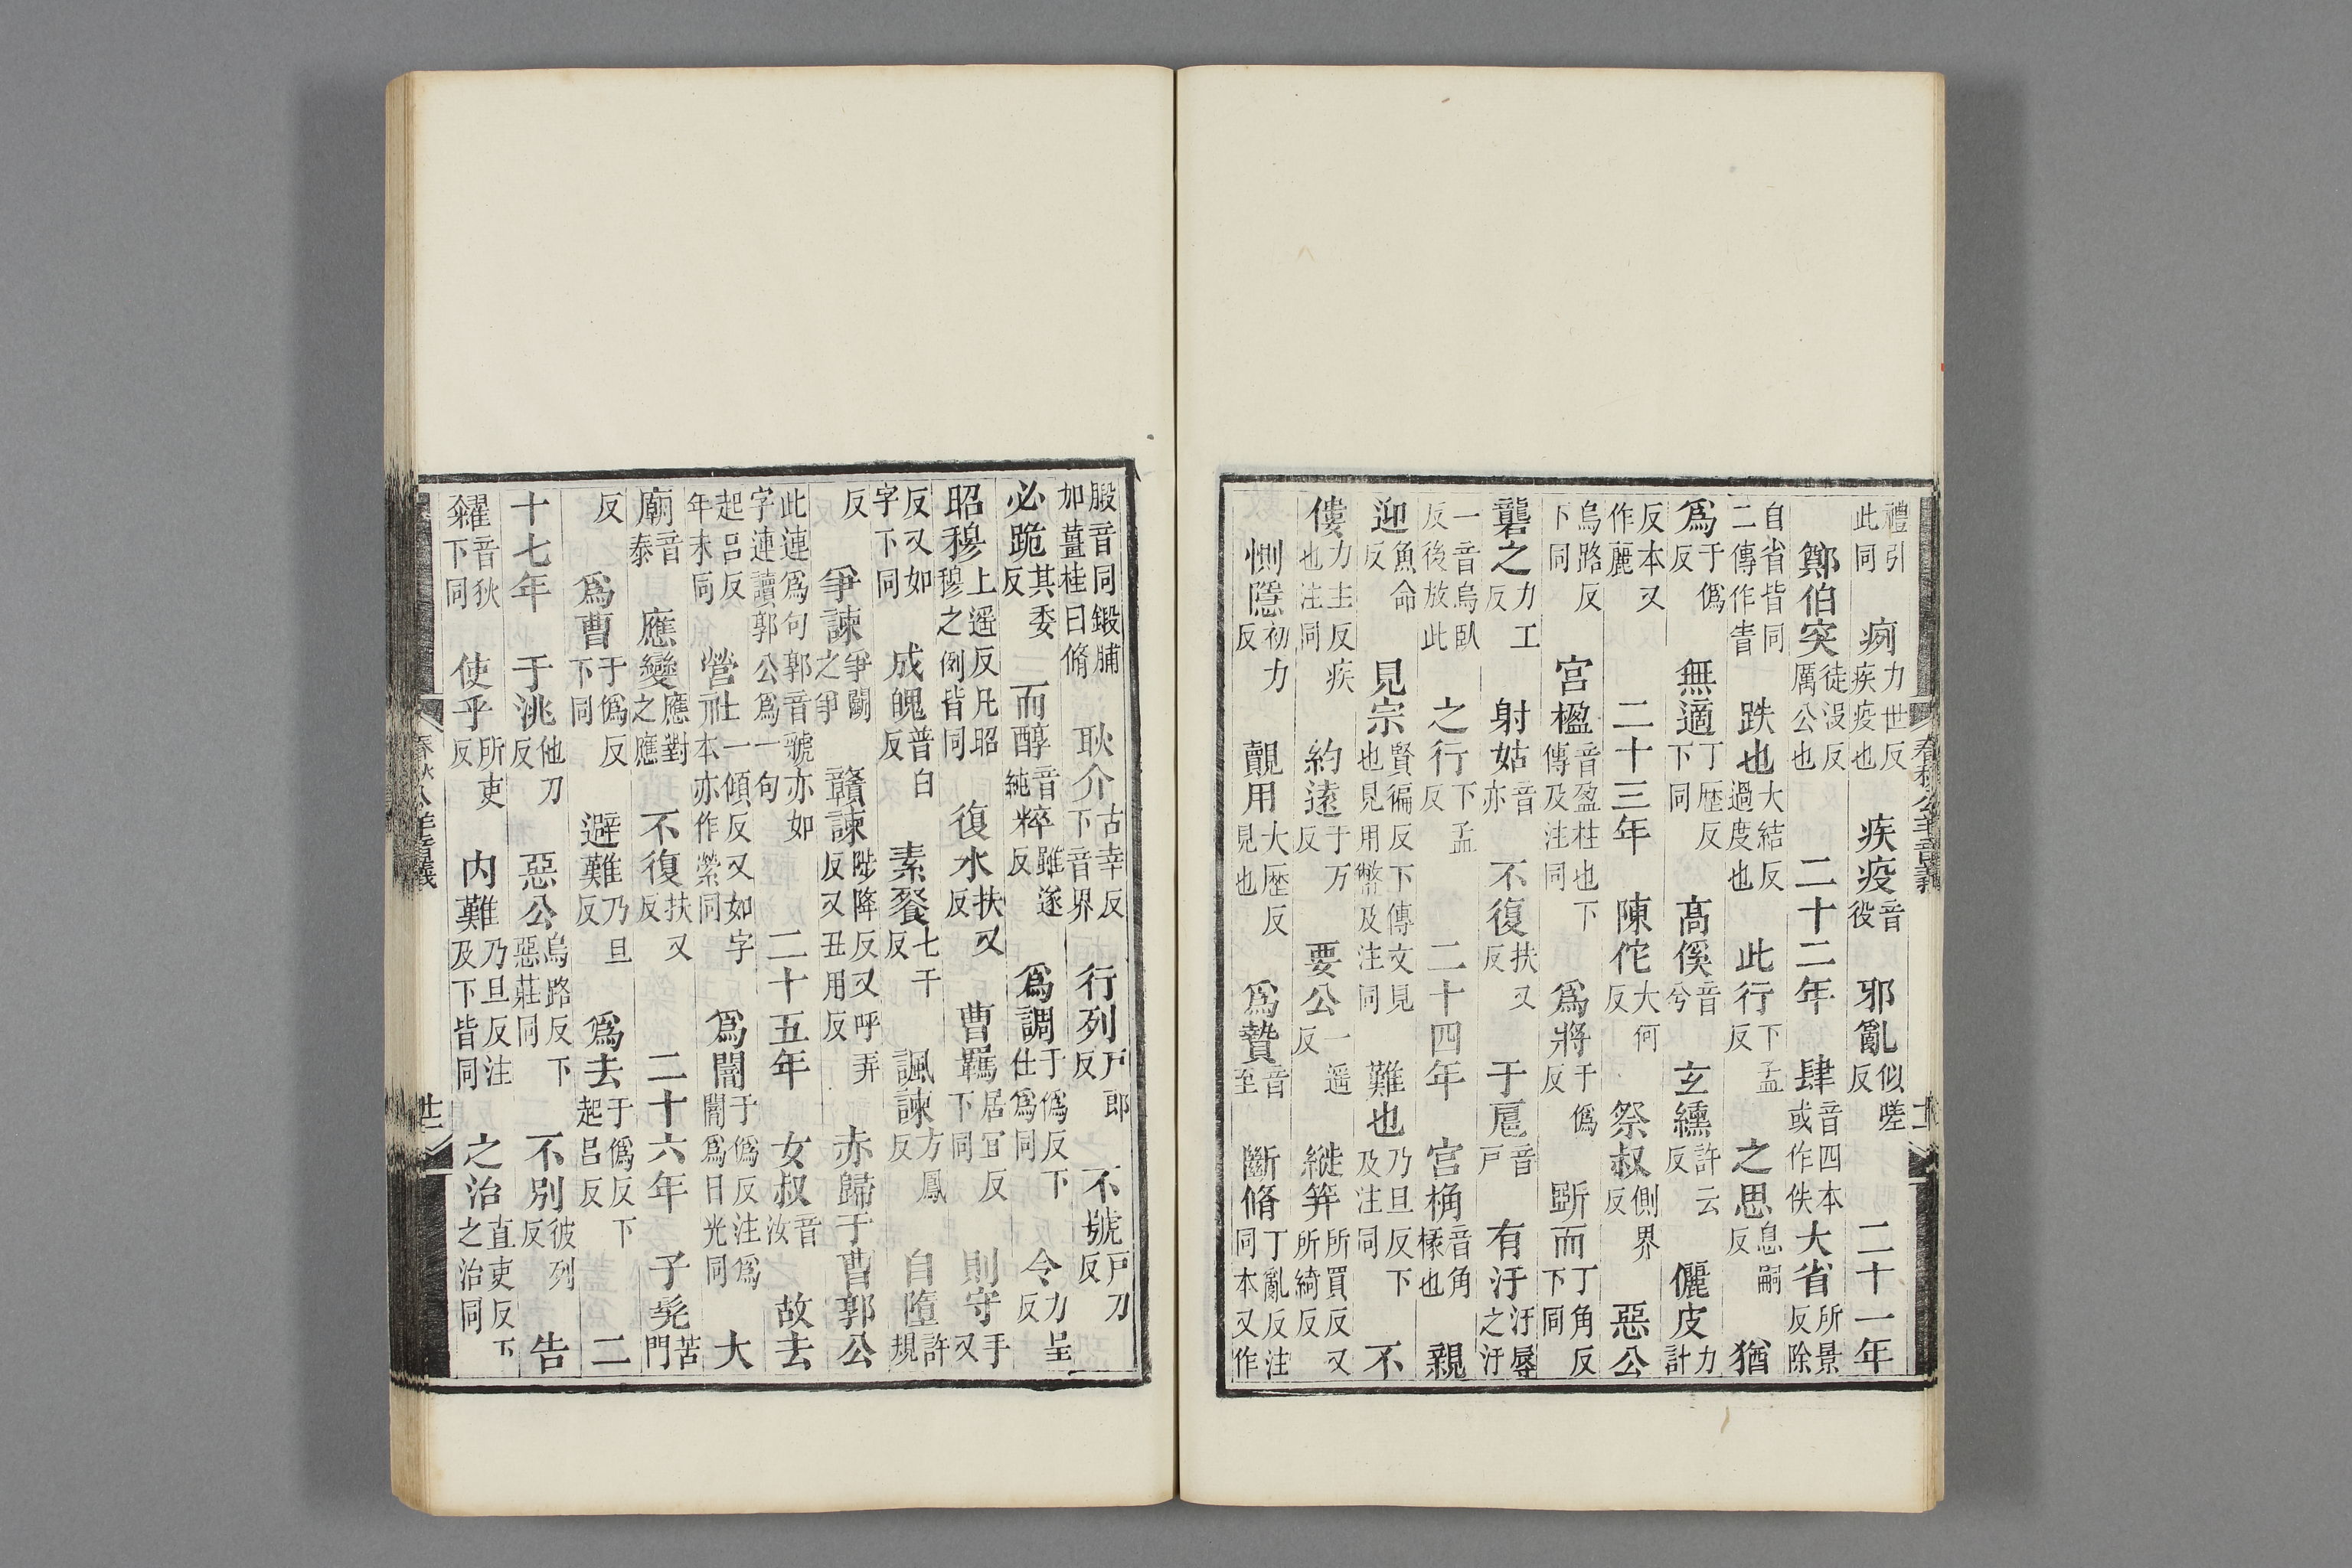 禮引此同 痾力世反疾疫也 疾疫音役 邪亂似嗟反 二十一年
鄭伯突徒沒反厲公也 二十二年 肆音四本或作佚 大省所景反除
自省皆同二傳作眚 跌也大結反過度也 此行下孟反 之思息嗣反 猶
爲于僞反 無適丁歷反下同 高傒音兮 玄纁許云反 儷皮力計
反本又作麗 二十三年 陳佗大何反 祭叔側界反 惡公
烏路反下同 宮楹音盈柱也下傳及注同 爲將于僞反 斲而丁角反下同
礱之力工反 射姑音亦 不復扶又反 于扈音戶 有汙汙辱之汙
一音烏臥反後放此 之行下孟反 二十四年 宮桷音角椽也 親
迎魚命反 見宗賢徧反下傳文見也見用幣及注同 難也乃旦反下及注同 不
僂力主反疾也注同 約遠于万反 要公一遥反 縰笄所買反又所綺反
惻隱初力反 覿用大歷反見也 爲贄音至 斷脩丁亂反注同本又作
腶音同鍛脯加薑桂曰脩 耿介古幸反下音界 行列戶郎反 不號戶刀反
必跪其委反 而醇音純 粹雖遂反 爲調于僞反下仕爲同 令力呈反
昭穆上遥反凡昭穆之例皆同 復水扶又反 曹羈居宜反下同 則守手又
反又如字下同 成魄普白反 素餐七干反 諷諫方鳳反 自隳許規
反 爭諫爭鬭之爭 贛諫陟降反又呼弄反又丑用反 赤歸于曹郭公
此連爲句郭音虢亦如字連讀郭公爲一句 二十五年 女叔音汝 故去
起呂反年末同 營士一傾反又如字一本亦作縈同 爲闇于僞反注爲闇爲日光同 大
廟音泰 應變應對之應 不復扶又反 二十六年 子髡苦門
反 爲曹于僞反下同 避難乃旦反 爲去于僞反下起呂反 二
十七年 于洮他刀反 惡公烏路反下惡莊同 不別彼列反 告
糴音狄下同 使乎所吏反 内難乃旦反注及下皆同 之治直吏反下之治同